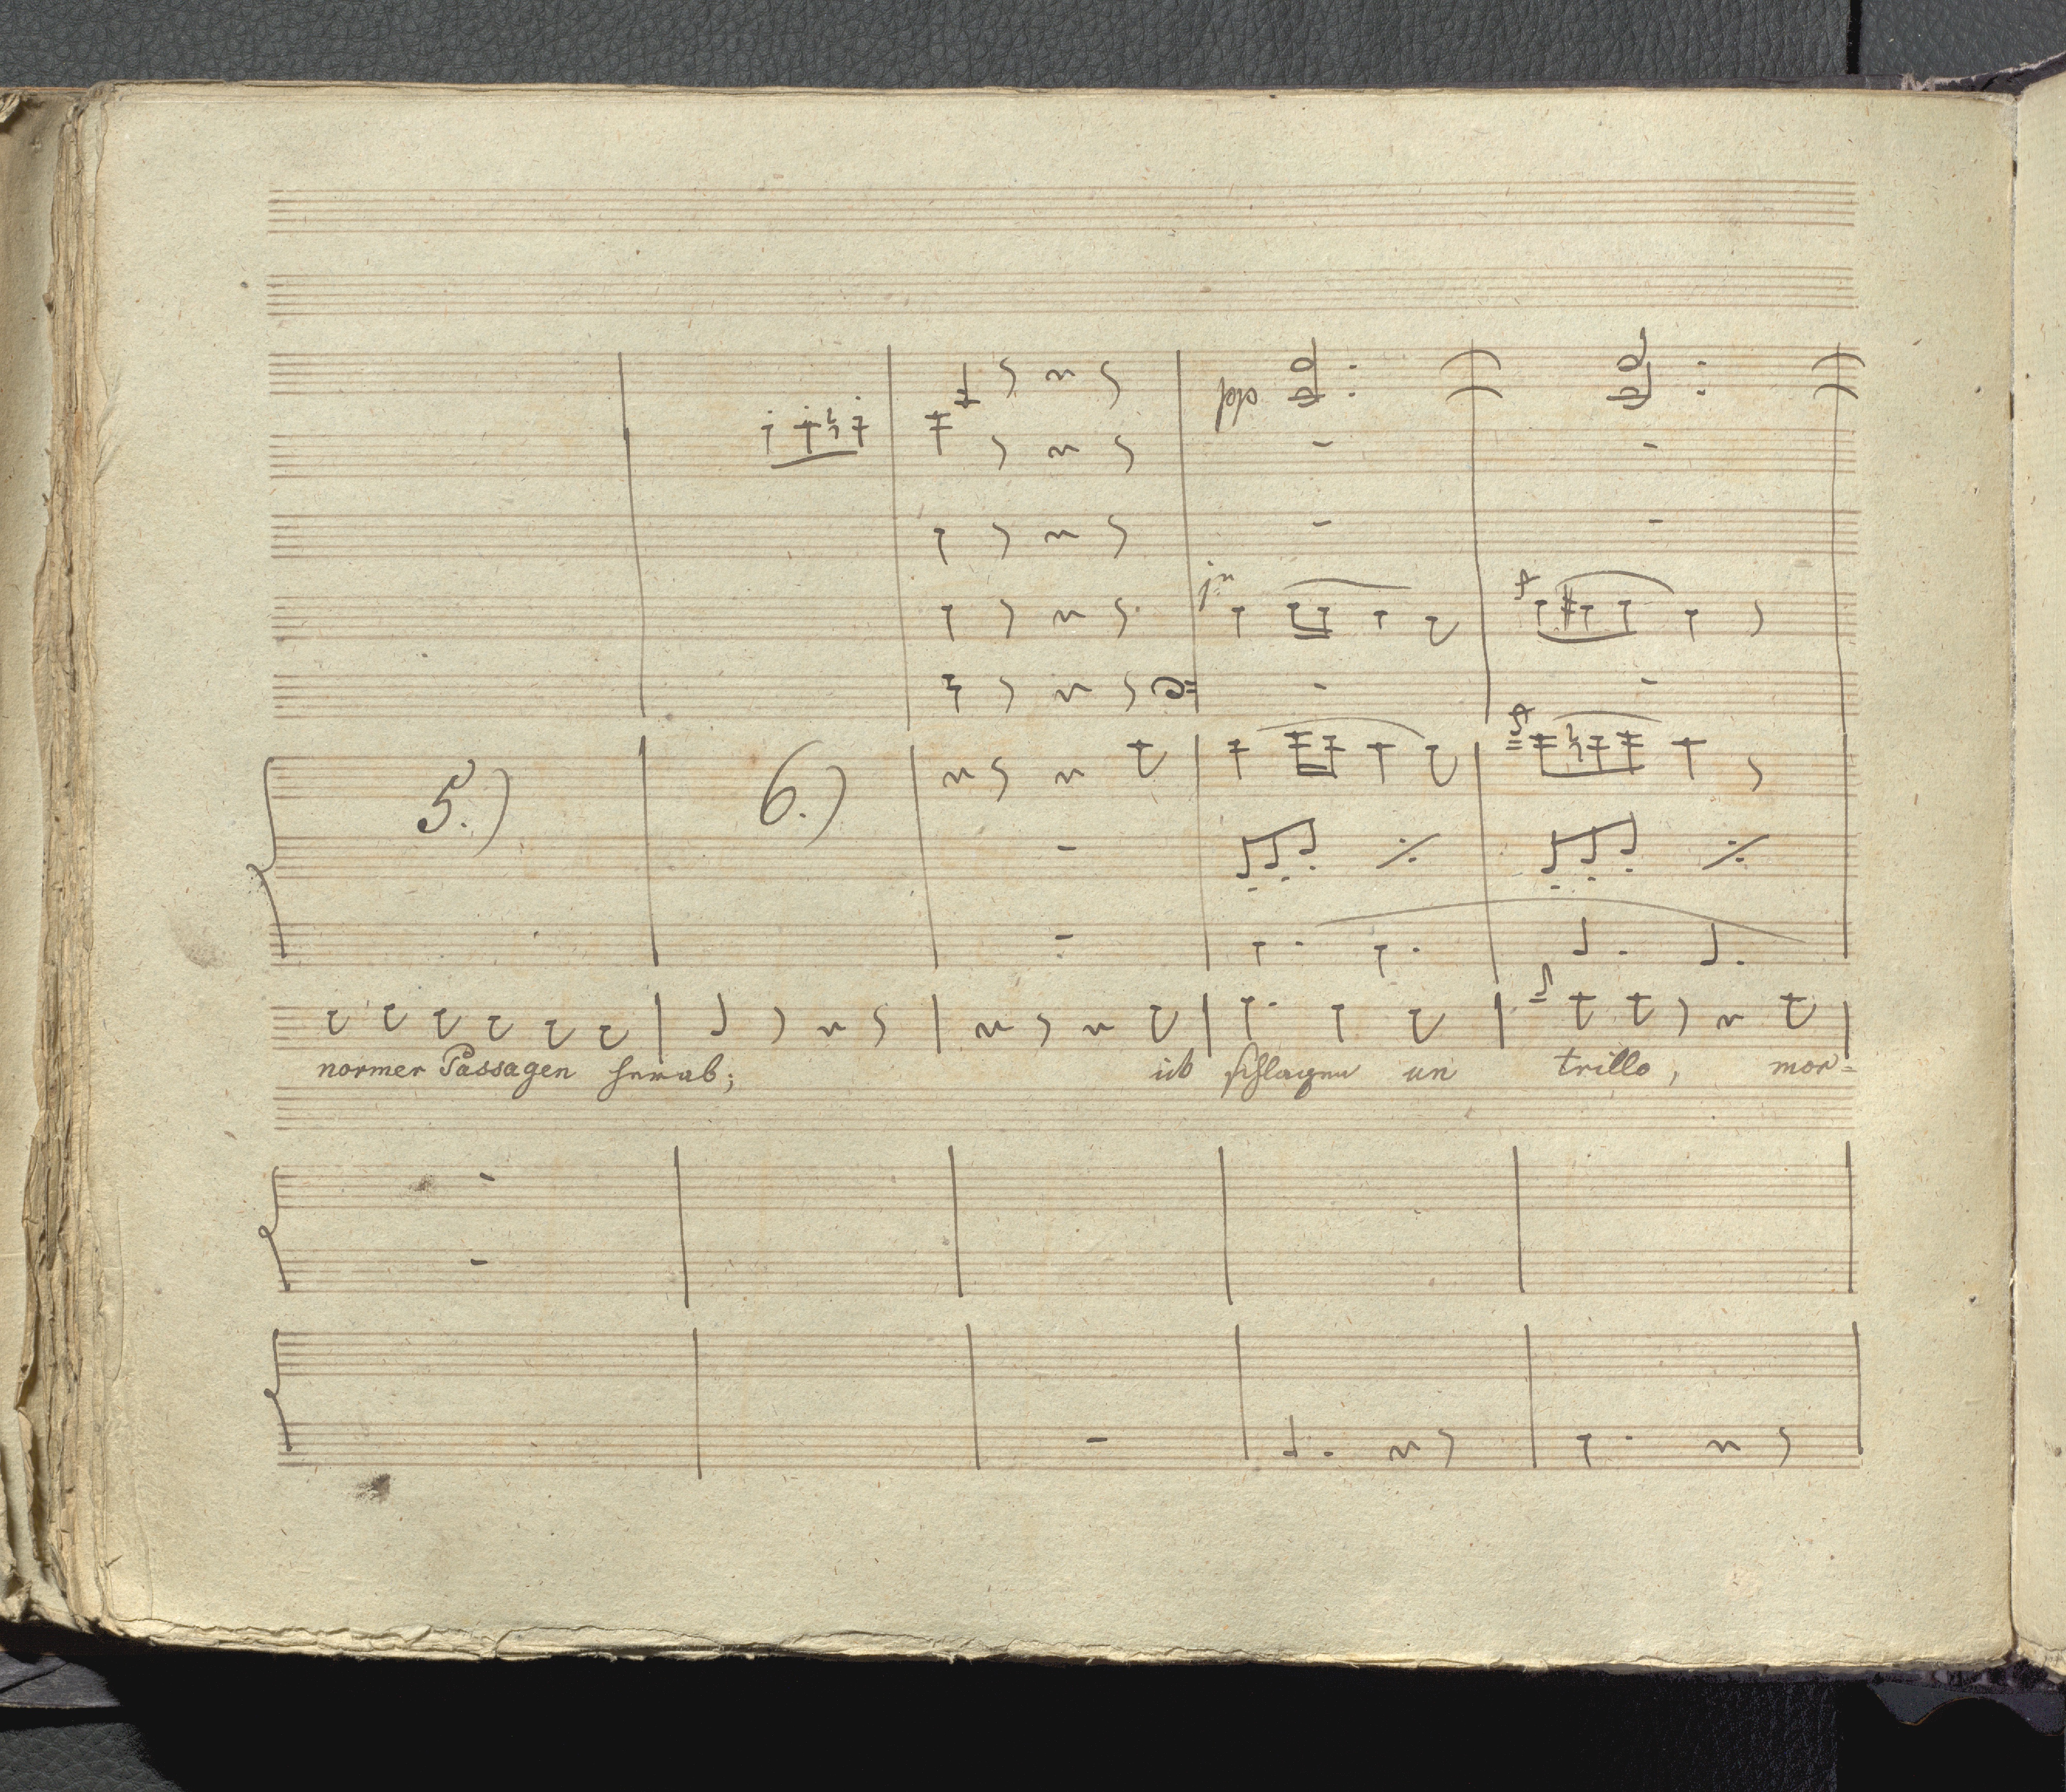 pp
1º
5.) 6.)
normer Passagen herab; ich schlagen un trillo, mor=